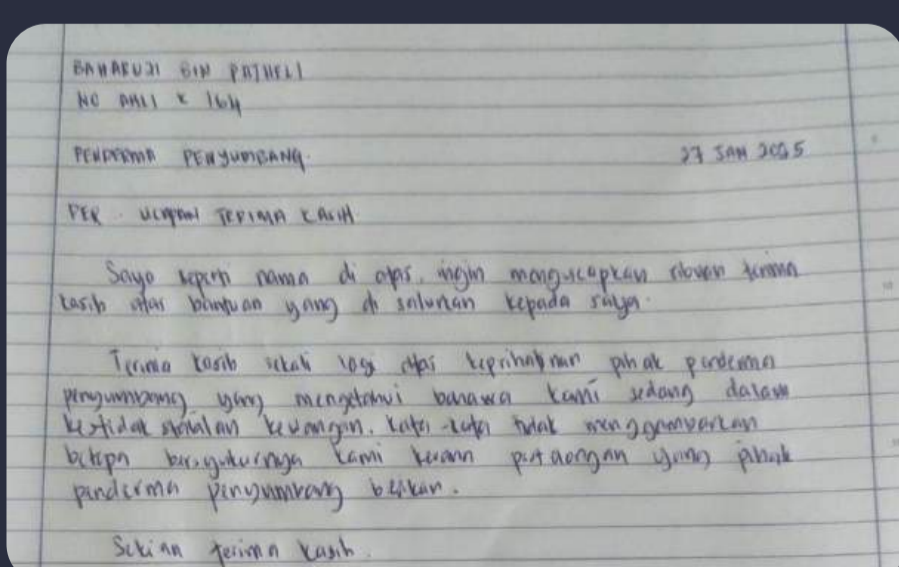 BAHARUDI BIN PATHELI
NO AHLI K 164
PENDERMA PENYUMBANG. 27 JAN 2025
PER : UCAPAN TERIMA KASIH
Saya seperti nama di atas, ingin mengucapkan ribuan terima
kasih atas bantuan yang di salurkan kepada saya.
Terima kasih sekali lagi atas keprihatinan pihak penderma
penyumbang yang mengetahui bahawa kami sedang dalam
kestidak stabilan kewangan. kata-kata tidak menggambarkan
betapa bersyukurnya kami kerana pertolongan yang pihak
penderma penyumbang berikan.
Sekian terima kasih.